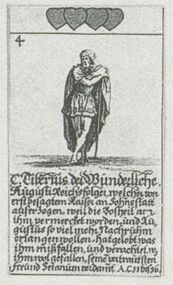 4
C. Tiberius der Wunderliche.
Augusti Reichsfolger, welcher wei
erst besagtem Kaiser an Sohnsstatt
auferzogen. weil die Bosheit an
ihm vermercket worden, und Au,
gustus so viel mehr Nachruhm
erlangen wollen. hat gelobt was
ihm misfallen, und verachtet, w,
ihm wol gefallen, seine vertrautsten
freund Seianum